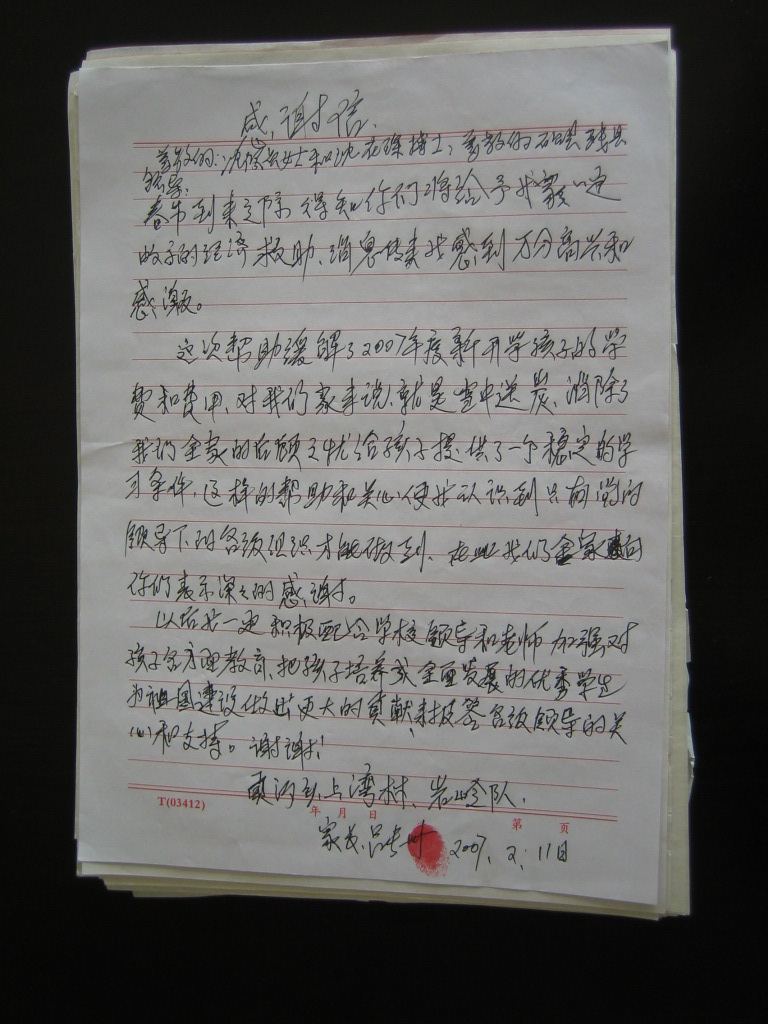 感谢信
尊敬的: 女士和沈 博士, 尊敬的 县
领导:
春节到来之际 得知你们将给予我家一定
的经济救助、消息传来我感到万分高兴和
感激。
这次帮助缓解了2007年度新开学孩子的学
费和费用、对我们家来说、就是雪中送炭、消除了
我们全家的后顾之忧给孩子提供了一个稳定的学
习条件、这样的帮助和关心使我认识到只有党的
领导下的各级组织才能做到、在此我们全家向
你们表示深深的感谢。
以后我一定积极配合学校领导和老师加强对
孩子全方面教育、把孩子培养成全面发展的优秀学生
为祖国建设做出更大的贡献来报答各级领导的关
心和支持。谢谢!
上湾村、岩 队.
T(03412)
年 月 日
第 页
家长 吕
2007. 2. 11日